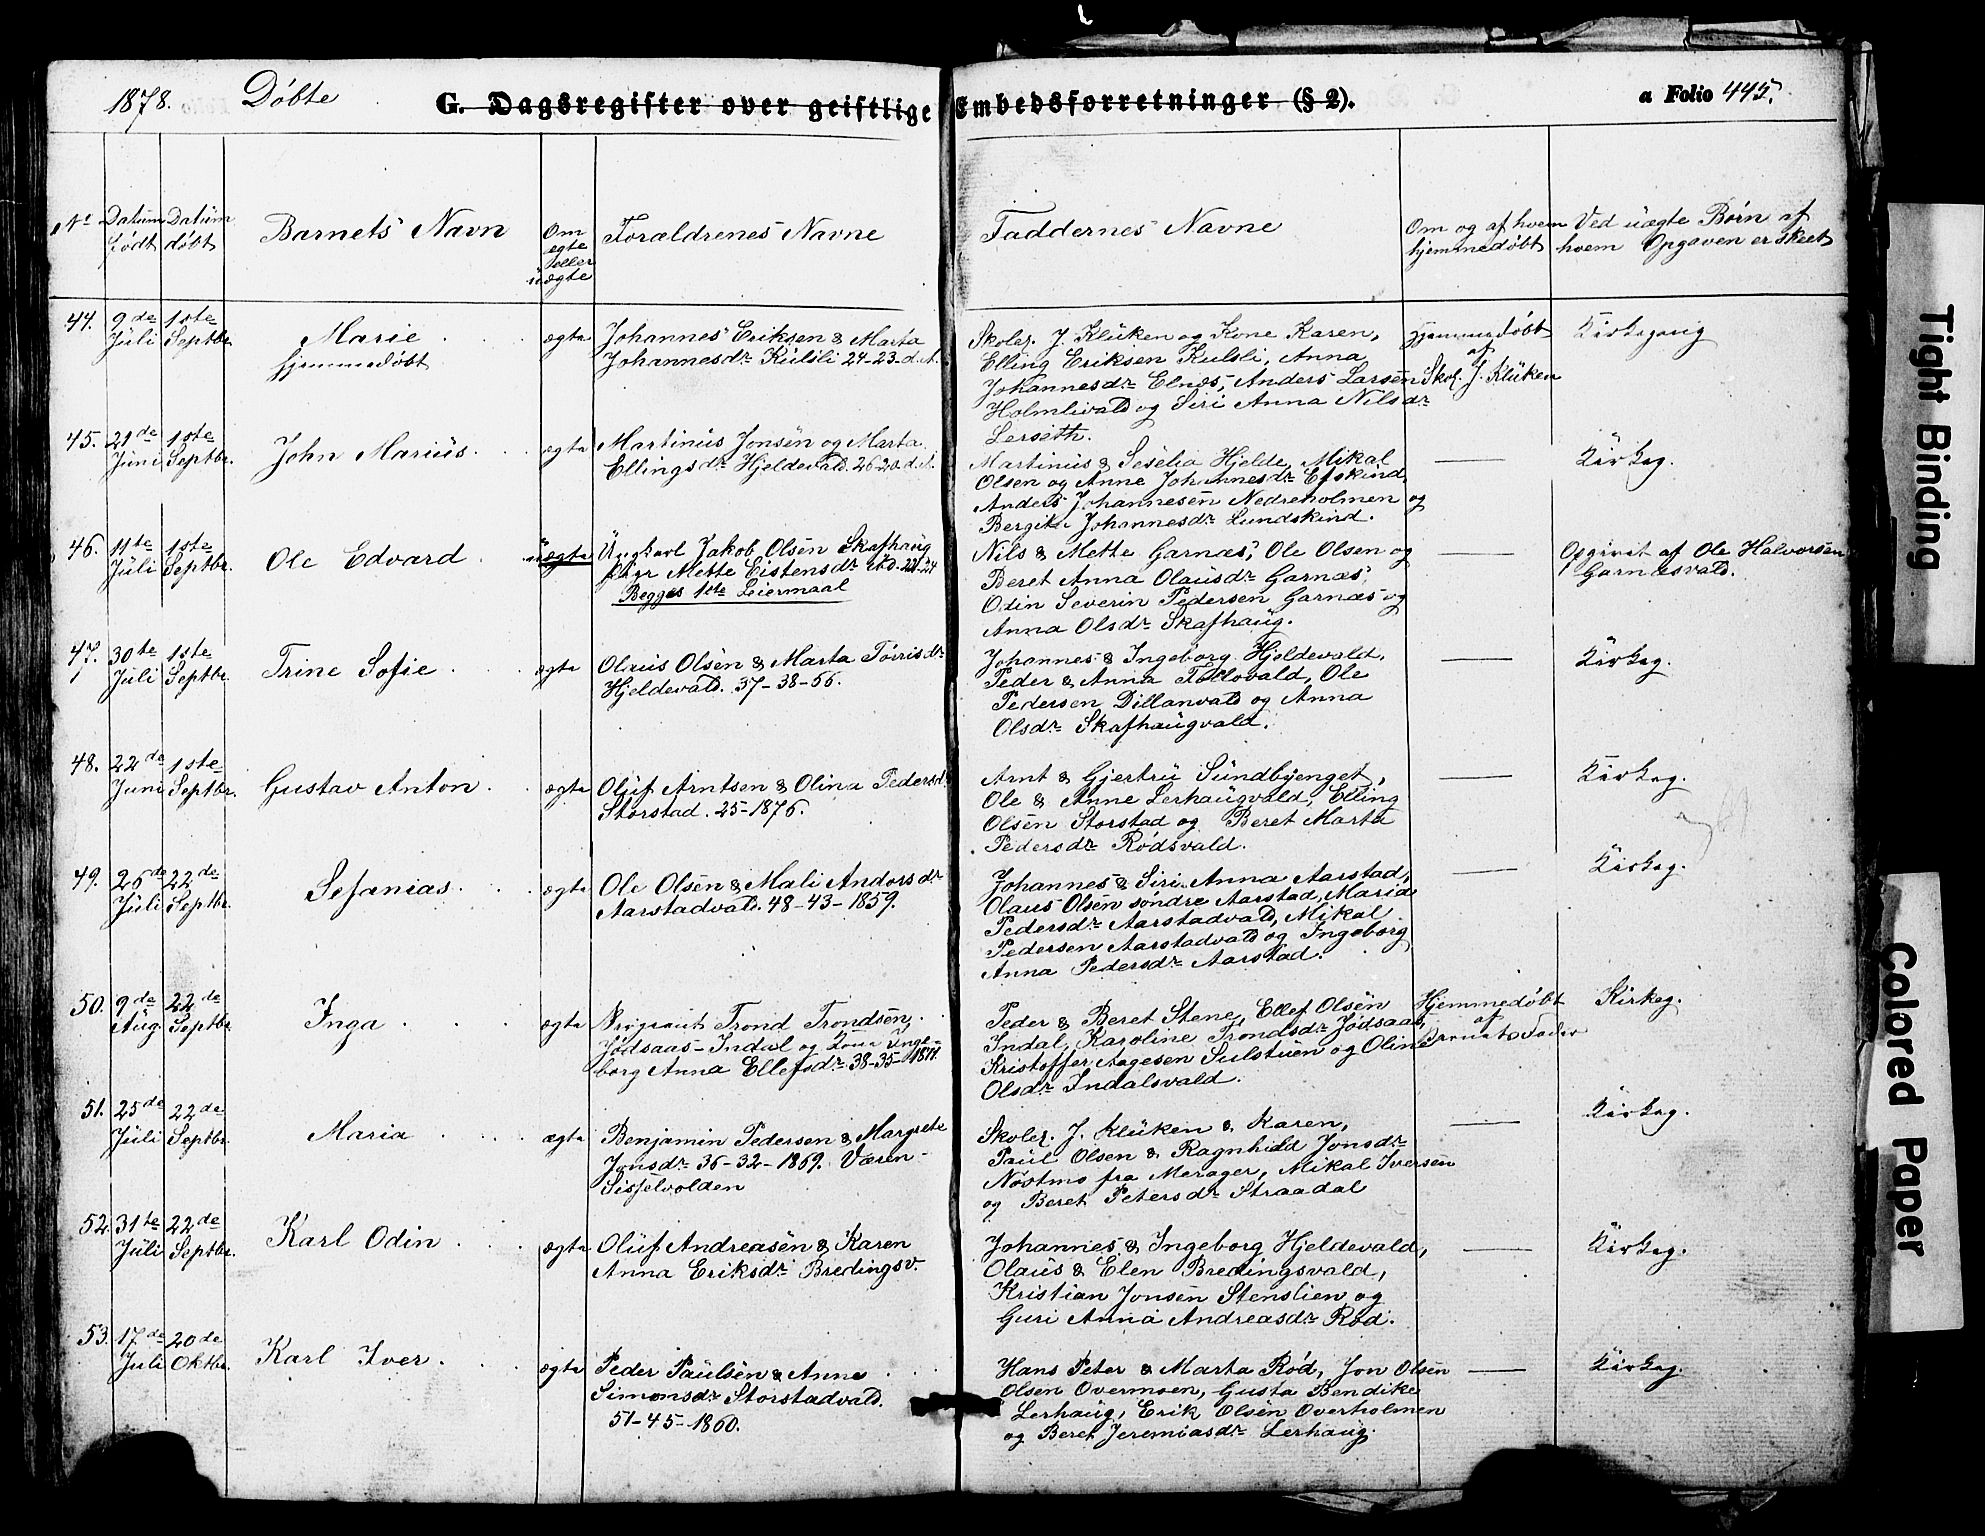 1878. Döbte G. Dagsregister over geistlige Embedsforretninger (§ 2). a Folio 445.
No Datum födt Datum döbt Barnets Navn Om egte eller uægte Forældrenes Navne Faddernes Navne Om og af hvem hjemmedöbt Ved uægte Börn af hvem Opgaven er skeet
44. 9de Juli 1ste Septbr. Marie ægte Johannes Eriksen & Marta Skolel. J. Klüken og Kone Karen, Hjemmedöbt Kirkegang
hjemmedöbt Johannesdr. Kulsli 24-23-d. A. Elling Eriksen Kulsli, Anna af
Johannesdr. Elnæs, Anders Larsen Skol. J. Klüken
Holmlivald og Siri Anna Nilsdr.
Lerseth.
45. 21de Juni 1ste Septbr. John Marius ægte Martinus Jonsen og Marta Martinus & Seselia Hjelde, Mikal — Kirkeg.
Ellingsdr. Hjeldevald. 26-20. d. A. Olsen og Anne Johannesdr. Efskind,
Anders Johannesen Nedreholmen og
Bergite Johannesdr. Lundskind.
46. 11te Juli 1ste Septbr. Ole Edvard uægte Ungkarl Jakob Olsen Skafhaug Nils & Mette Garnæs, Ole Olsen og — Opgivet af Ole Halvorsen
pige Mette Eistensdr. ibd. 22-24 Beret Anna Olausdr. Garnæs, Garnæsvald.
Begges 1ste Leiermaal Odin Severin Pedersen Garnæs og
Anna Olsdr. Skafhaug.
47. 30te Juli 1ste Septbr. Trine Sofie ægte Olaus Olsen & Marta Toirisdr. Johannes & Ingeborg Hjeldevald, — Kirkeg.
Hjeldevald. 37-38-56. Peder & Anna Follovald, Ole
Pedersen Dillanvald og Anna
Olsdr. Skafhaugvald.
48. 22de Juni 1ste Septbr. Gustav Anton ægte Oluf Arntsen & Olina Pedersd. Arnt & Gjertru Sundbyenget, — Kirkeg.
Storstad. 25-1876. Ole & Anne Lerhaugvald, Elling
Olsen Storstad og Beret Marta
Pedersdr. Rödsvald.
49. 26de Juli 22de Septbr. Sefanias ægte Ole Olsen & Mali Andorsdr. Johannes & Siri Anna Aarstad, — Kirkeg.
Aarstadvald. 48-43-1859. Olaus Olsen söndre Aarstad, Maria
Pedersdr. Aarstadvald, Mikal
Pedersen Aarstadvald og Ingeborg
Anna Pedersdr. Aarstad.
50. 9de Aug. 22de Septbr. Inga ægte Trond Trondsen, Peder & Beret Stene, Ellef Olsen Hjemmedöbt Kirkeg.
Jödsaas-Indal og Kone Inge- Indal, Karoline Trondsdr. Jödsaas, af
borg Anna Ellefsdr. 38-35-1877 Kristoffer Aagesen Sulstuen og Oline Barnets Fader
Olsdr. Indalsvald.
51. 25de Juli 22de Septbr. Maria ægte Benjamin Pedersen & Margrete Skolel. J. Klüken & Karen, — Kirkeg.
Jonsdr. 36-32-1869. Væren- Paul Olsen & Ragnhild Jonsdr.
Sisselvolden Nöstmo fra Merager, Mikal Iversen
og Beret Petersdr. Straadal
52. 31te Juli 22de Septbr. Karl Odin ægte Oluf Andreasen & Karen Johannes & Ingeborg Hjeldevald, — Kirkeg.
Anna Eriksdr. Bredingsv. Olaus & Elen Bredingsvald,
Kristian Jonsen Stenslien og
Guri Anna Andreasdr. Röd.
53. 17de Juli 20de Oktbr. Karl Iver ægte Peder Paulsen & Anna Hans Peter & Marta Röd, Jon Olsen — Kirkeg.
Simonsdr. Storstadvald. Olsen Overmoen, Gusta Bendike
51-45-1860. Lerhaug, Erik Olsen Overholmen
og Beret Jeremiasdr. Lerhaug.
Tight Binding
Colored Paper